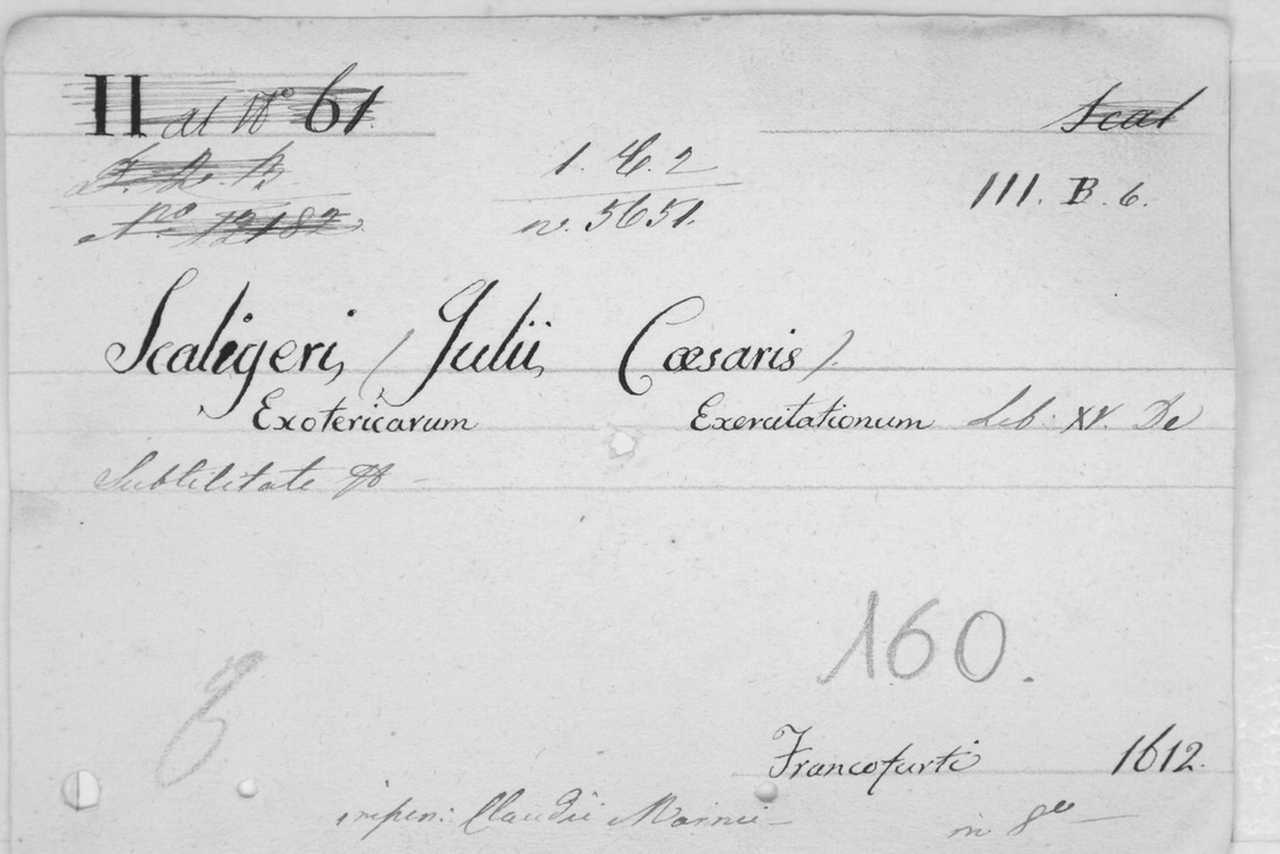 II al Nº 61.
Scal
1. C. 2
Nº 12182
n. 5651.
III. B. 6.
Scaligeri, (Julii, Cæsaris).
Exotericarum Exercitationum Lib. XV. De
Subtilitate
160.
Francofurti 1612.
impen: Claudii Marnii
in 8º